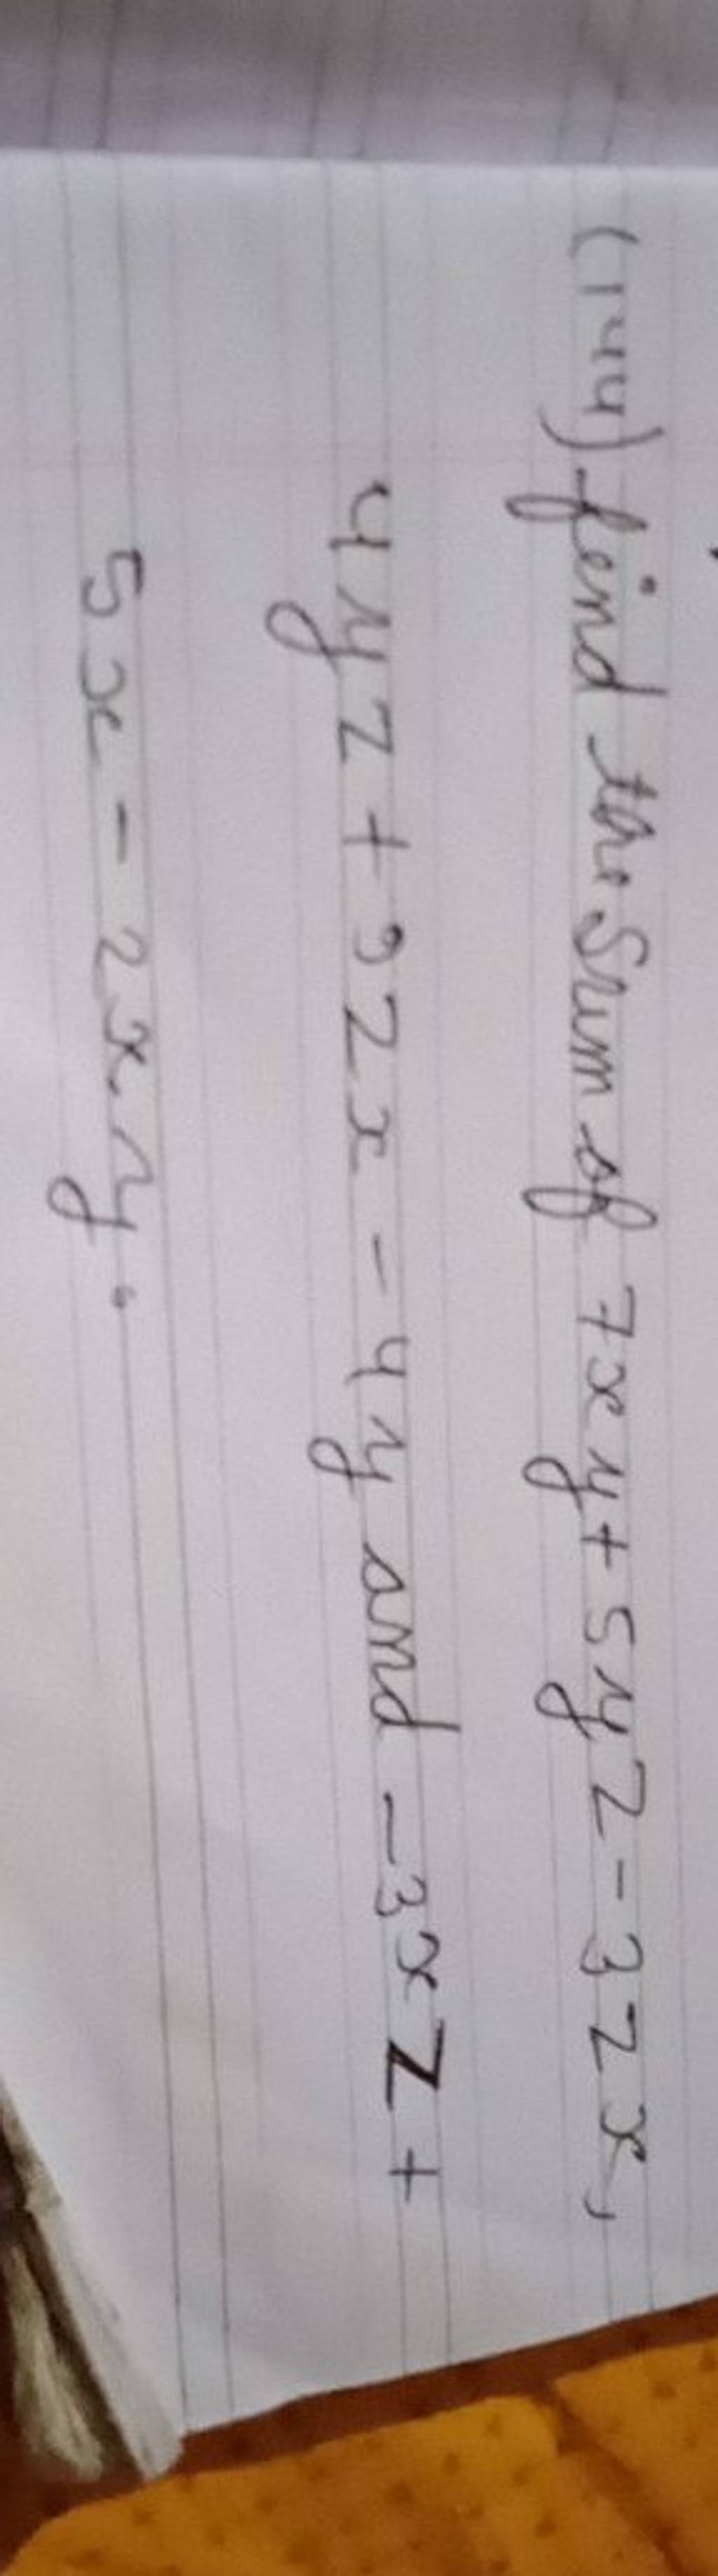 (144) find the Sum of 7xy + 5yz - 3zx,
4yz + 9zx - 4y and - 3xz +
5x - 2xy.